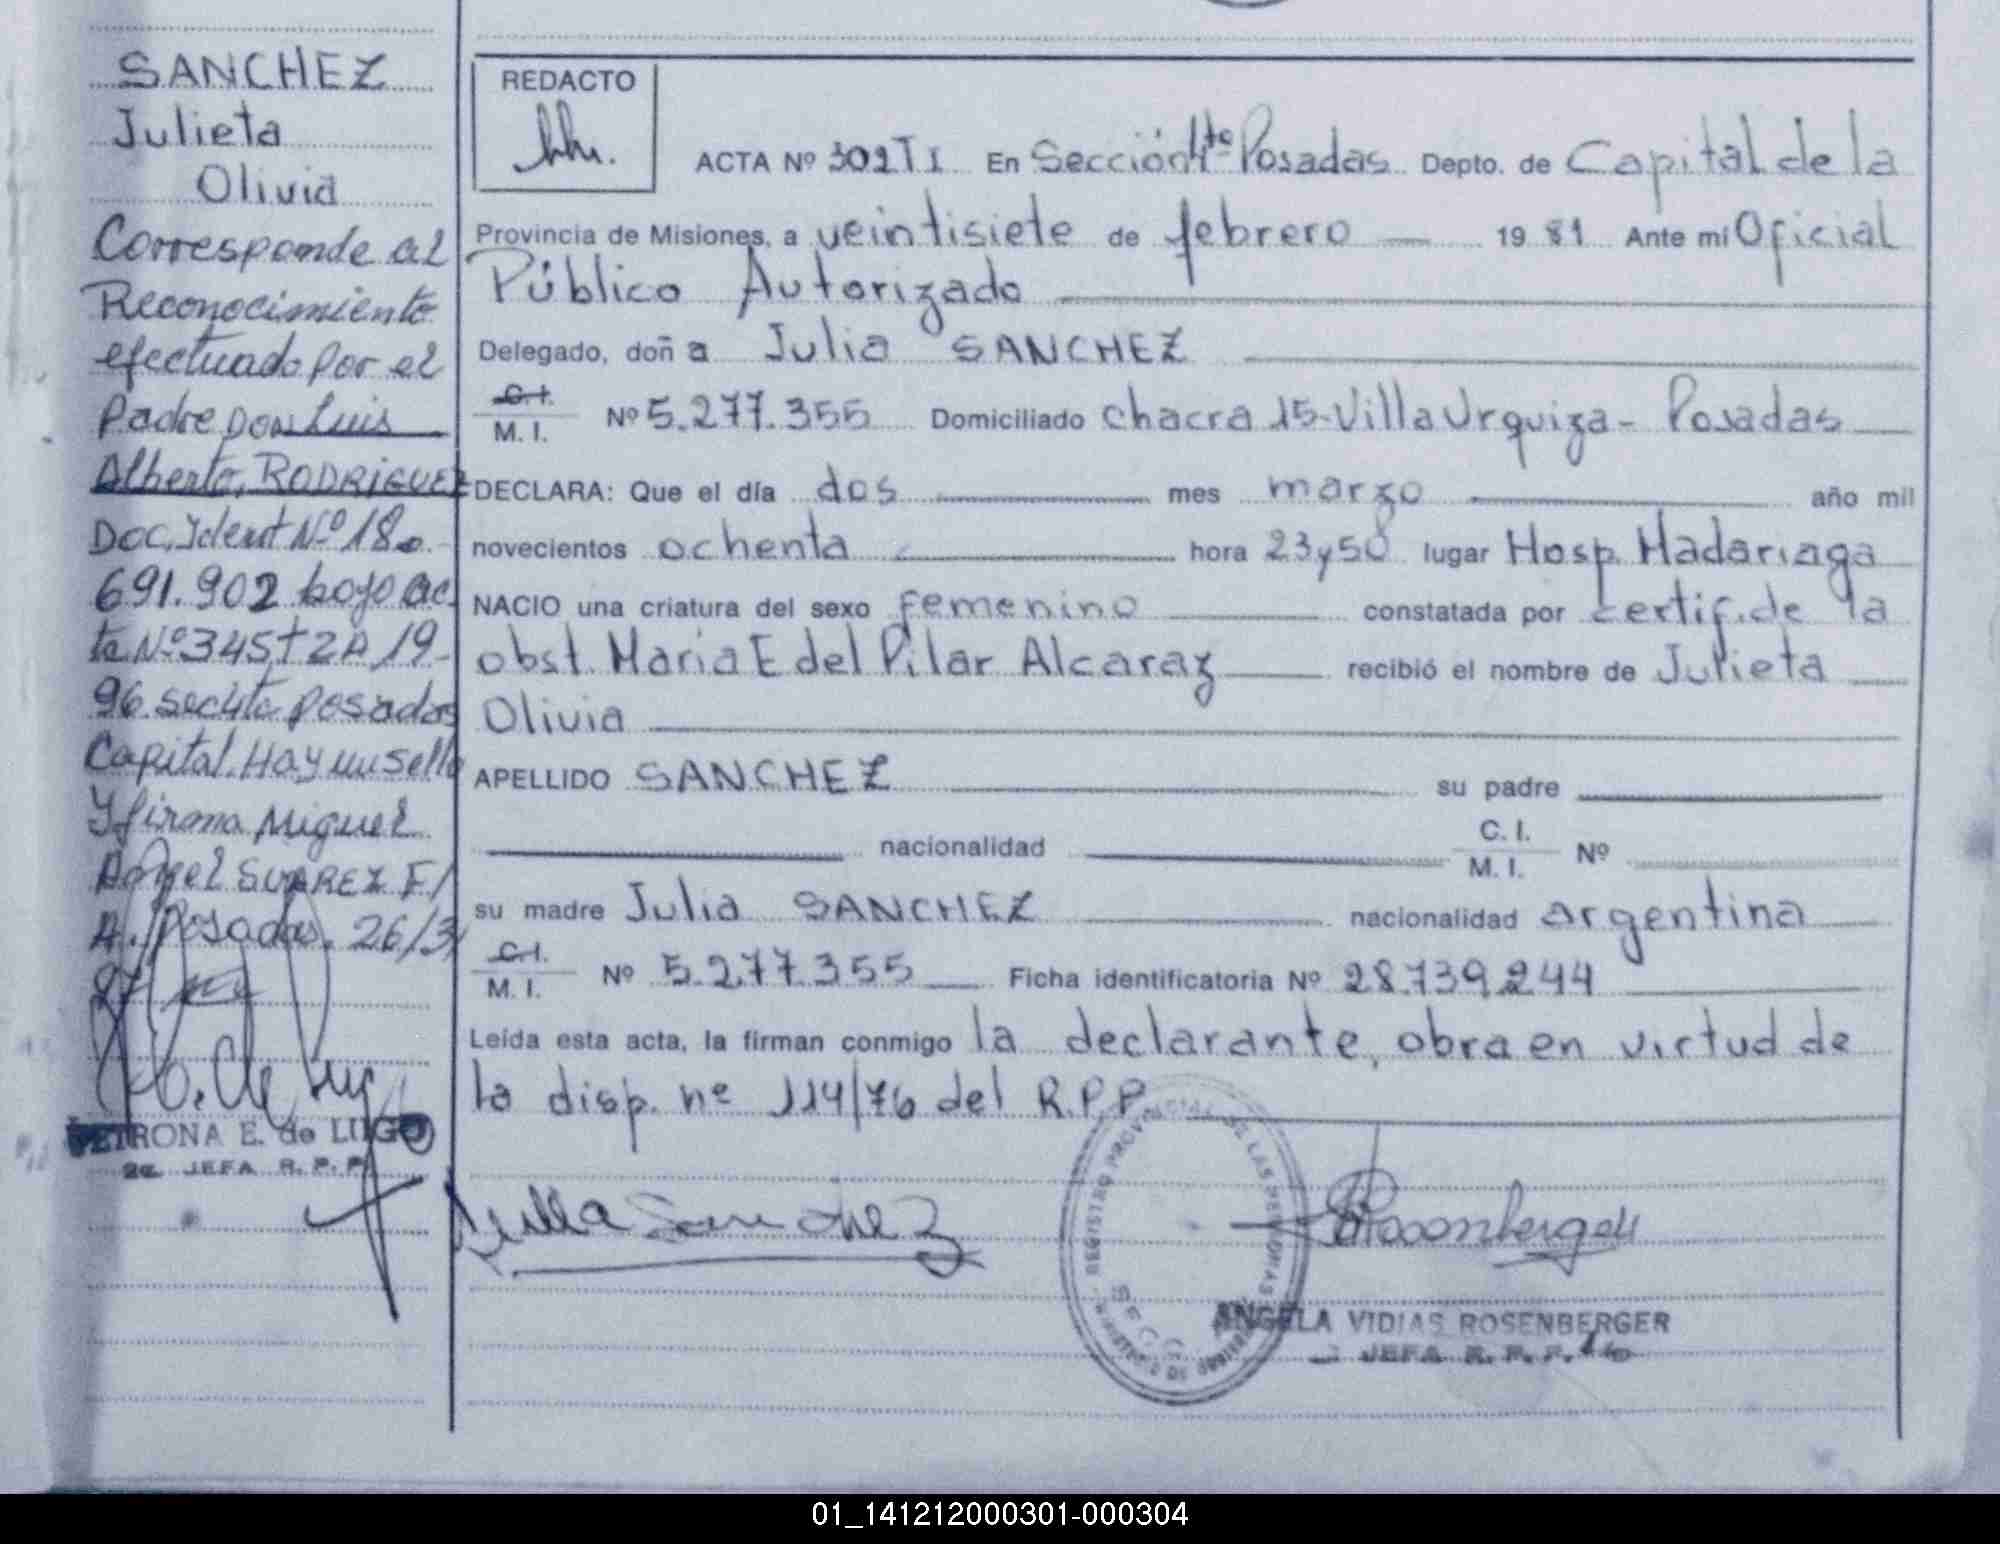 SANCHEZ
Julieta
Olivia
Corresponde al
Reconocimiento
efectuado por el
Padre Don Luis
Alberto, RODRIGUEZ
Doc. Ident Nº 18.
691.902 bajo ac
ta Nº 345, t 2A, 19-
96. Sec 4ta Posadas
Capital. Hay un sello
Y firma Miguel
Angel SUAREZ F/
A. Posadas. 26/3/
97
PETRONA E. de LUGO
2a. JEFA R. P. P.
REDACTO
ACTA Nº 302 T I En Sección 4ta Posadas Depto. de Capital de la
Provincia de Misiones, a veintisiete de febrero 19 81 Ante mí Oficial
Público Autorizado
Delegado, doña Julia SANCHEZ
C. I.
M. I. Nº 5.277.355 Domiciliado chacra 15-Villa Urquiza- Posadas
DECLARA: Que el día dos mes marzo año mil
novecientos ochenta hora 23y50 lugar Hosp. Madariaga
NACIO una criatura del sexo femenino constatada por certif. de la
obst. Maria E del Pilar Alcaraz recibió el nombre de Julieta
Olivia
APELLIDO SANCHEZ su padre
nacionalidad C. I.
M. I. Nº
su madre Julia SANCHEZ nacionalidad argentina
C. I.
M. I. Nº 5.277.355 Ficha identificatoria Nº 28.739.244
Leída esta acta, la firman conmigo la declarante, obra en virtud de
la disp. nº 114/76 del R.P.P.
Julia Sanchez
REGISTRO PROVINCIAL DE LAS PERSONAS
ANGELA VIDIAS ROSENBERGER
JEFA R. P. P.
01_141212000301-000304